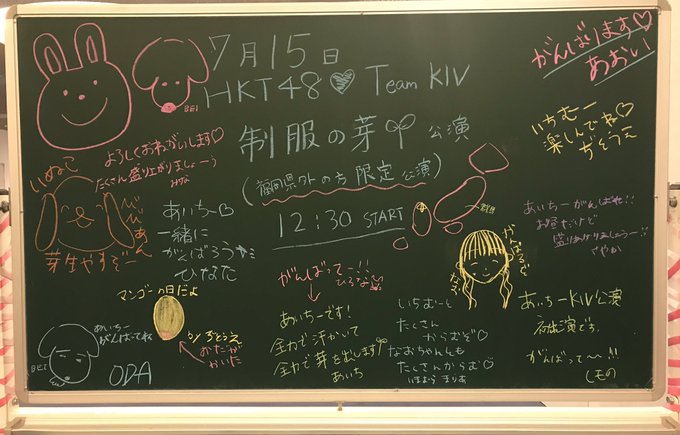 7月15日
HKT48♡ Team KIV
制服の芽 公演
(福岡県外の方限定公演)
12:30 START
がんばります♡
あおい
いちむー
楽しんでね♡
ぢそうえ
BEI
よろしくおねがいします♡
たくさん盛り上がりましょーう
みな
いぬねこ
芽生やすぞー
あいちー
一緒に
がんばろう
ひなた
マンゴーの日だよ
ぢそうえ
おだが
かいた
あいちー
がんばってね
BEI
ODA
がんばってー!!
ひろな
あいちーです!
全力で汗かいて
全力で芽を出します
あいち
いちむーと
たくさん
からむぞ♡
なおちゃんしも
たくさんからむ♡
いまむら まりあ
がんばるぞ
あいちーがんばれ!!
お昼だけど
盛りあがりましょうー!!
さやか
あいちーKIV公演
初出演です。
がんばって〜!!
しもの